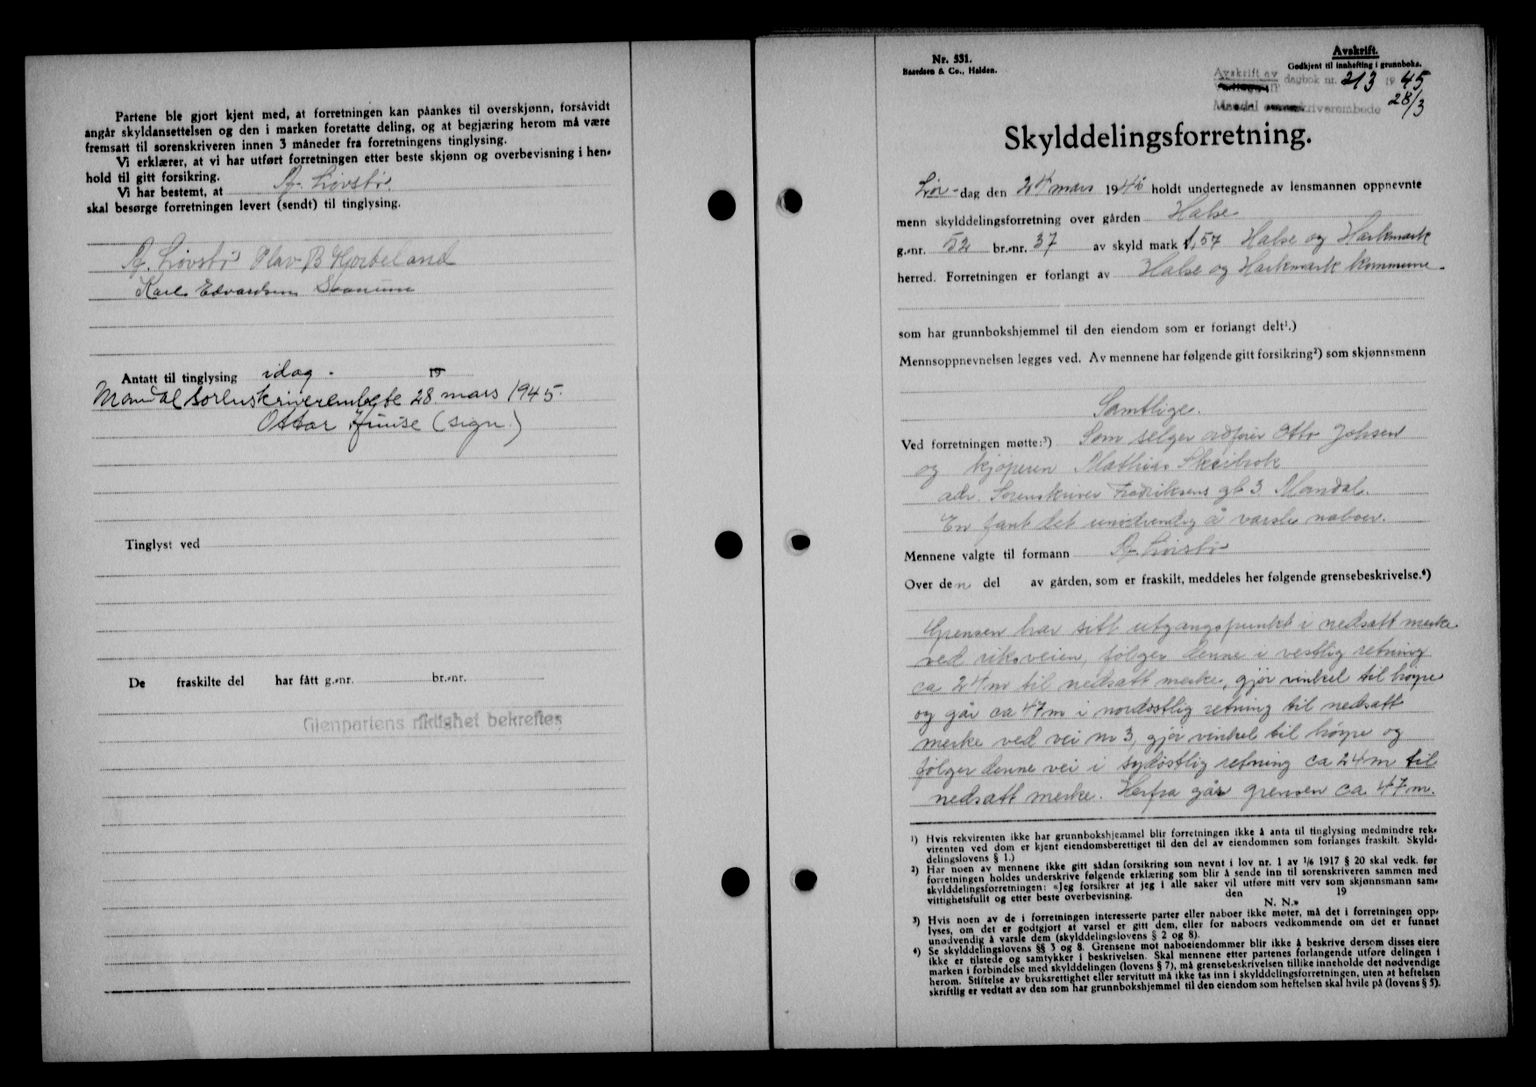 Partene ble gjort kjent med, at forretningen kan påankes til overskjønn, forsåvidt
angår skyldansettelsen og den i marken foretatte deling, og at begjæring herom må være
fremsatt til sorenskriveren innen 3 måneder fra forretningens tinglysing.
Vi erklærer, at vi har utført forretningen etter beste skjønn og overbevisning i hen-
hold til gitt forsikring.
Vi har bestemt, at A. Løvstø
skal besørge forretningen levert (sendt) til tinglysing.
A. Løvstø Olav B Hjorteland
Karl Edvardsen
Antatt til tinglysing idag. 19
Mandal sorenskriverembete 28 mars 1945.
Ottar Huuse (sign.)
Tinglyst ved
De fraskilte del har fått g.-nr. br.-nr.
Gjenpartens riktighet bekreftes
Nr. 531.
Baardsen & Co., Halden.
Avskrift.
Godkjent til innhefting i grunnboka.
Avskrift av dagbok nr. 213 1945
Mandal sorenskriverembede 28/3
Skylddelingsforretning.
Lør-dag den 24 mars 1945 holdt undertegnede av lensmannen oppnevnte
menn skylddelingsforretning over gården Halse
g.-nr. 52 br.-nr. 37 av skyld mark 1,57 Halse og Harkmark
herred. Forretningen er forlangt av Halse og Harkmark kommune.
som har grunnbokshjemmel til den eiendom som er forlangt delt¹.)
Mennsoppnevnelsen legges ved. Av mennene har følgende gitt forsikring²) som skjønnsmenn
Samtlige.
Ved forretningen møtte:³) Som selger ordfører Otto Johsen
og kjøperen Mathias Skeibrok
adr. Sorenskriver Fredriksens gt 3 Mandal.
En fant det unødvendig å varsle naboer.
Mennene valgte til formann A. Løvstø
Over den del av gården, som er fraskilt, meddeles her følgende grensebeskrivelse.⁴)
Grensen har sitt utgangspunkt i nedsatt merke
ved riksveien, følger denne i vestlig retning
ca 24 m til nedsatt merke, gjør vinkel til høyre
og går ca 47 m i nordostlig retning til nedsatt
merke ved vei nr 3, gjør vinkel til høyre og
følger denne vei i sydøstlig retning ca 24 m til
nedsatt merke. Herfra går grensen ca 47 m.
¹) Hvis rekvirenten ikke har grunnbokshjemmel blir forretningen ikke å anta til tinglysing medmindre rek-
virenten ved dom er kjent eiendomsberettiget til den del av eiendommen som forlanges fraskilt. Skyld-
delingslovens § 1.)
²) Har noen av mennene ikke gitt sådan forsikring som nevnt i lov nr. 1 av 1/6 1917 § 20 skal vedk. før
forretningen holdes underskrive følgende erklæring som blir å sende inn til sorenskriveren sammen med
skylddelingsforretningen: «Jeg forsikrer at jeg i alle saker vil utføre mitt verv som skjønnsmann sam-
vittighetsfullt og etter beste overbevisning. den 19
N. N.»
³) Hvis noen av de i forretningen interesserte parter eller naboer ikke møter, må det i forretningen opp-
lyses, om det er godtgjort at varsel er gitt dem, eller for naboers vedkommende om det er funnet
unødvendig å varsle dem (skylddelingslovens § 2 og 8).
⁴) Se skylddelingslovens §§ 3 og 8. Grensene mot naboeiendommer blir ikke å beskrive dersom disses eiere
ikke er tilstede og samtykker i beskrivelsen. Skal mennene etter partenes forlangende utføre delingen i
marken i forbindelse med skylddelingen (lovens § 7), må grensebeskrivelsen tillike inneholde det nødvendige
herom. Stiftelse av bruksrettighet eller servitutt må ikke tas inn i skylddelingsforretningen, uten at heftelsen
skriftlig er vedtatt av den som har grunnbokshjemmel til den eiendom som heftelsen skal hvile på (lovens § 5).